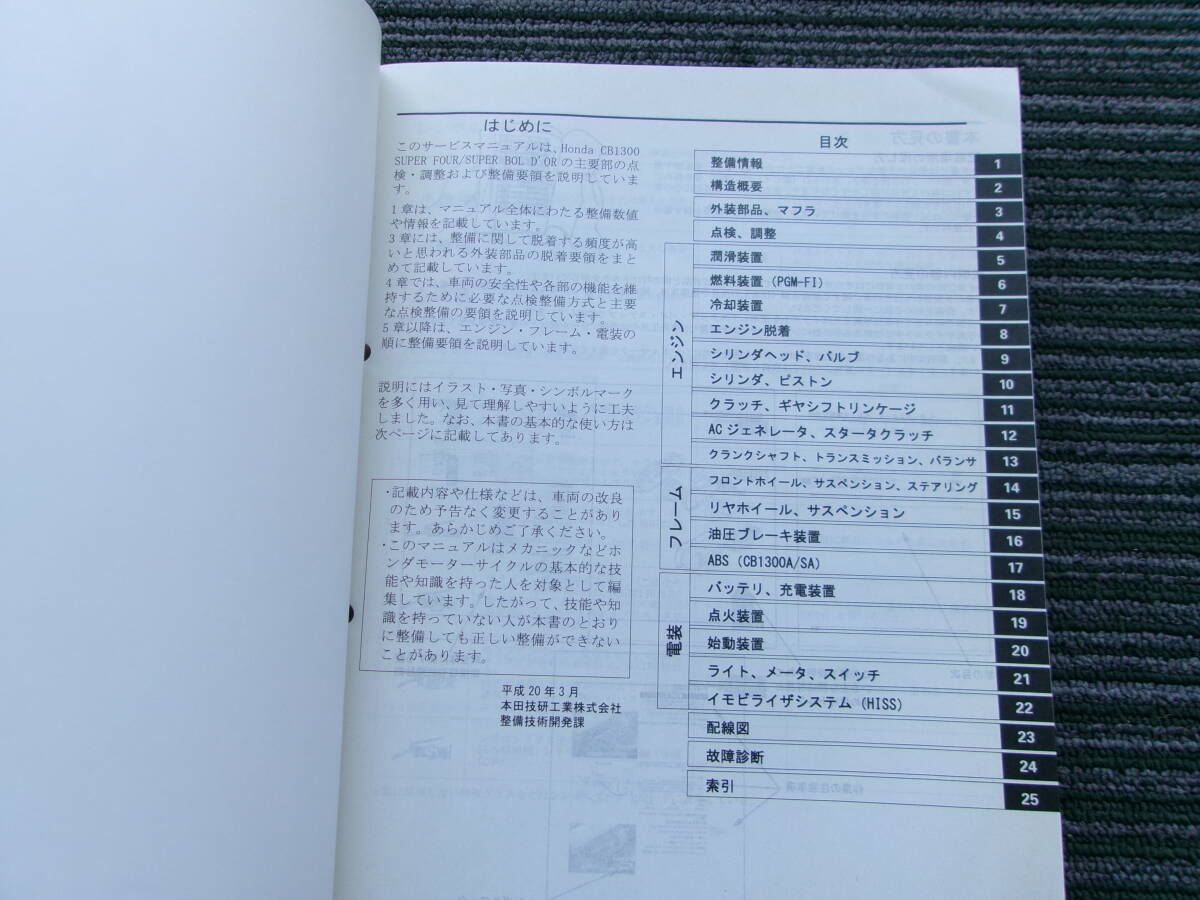 はじめに
このサービスマニュアルは、Honda CB1300
SUPER FOUR/SUPER BOL D'OR の主要部の点
検・調整および整備要領を説明していま
す。
1 章は、マニュアル全体にわたる整備数値
や情報を記載しています。
3 章には、整備に関して脱着する頻度が高
いと思われる外装部品の脱着要領をまと
めて記載しています。
4 章では、車両の安全性や各部の機能を維
持するために必要な点検整備方式と主要
な点検整備の要領を説明しています。
5 章以降は、エンジン・フレーム・電装の
順に整備要領を説明しています。
説明にはイラスト・写真・シンボルマーク
を多く用い、見て理解しやすいように工夫
しました。なお、本書の基本的な使い方は
次ページに記載してあります。
・記載内容や仕様などは、車両の改良
のため予告なく変更することがあり
ます。あらかじめご了承ください。
・このマニュアルはメカニックなどホ
ンダモーターサイクルの基本的な技
能や知識を持った人を対象として編
集しています。したがって、技能や知
識を持っていない人が本書のとおり
に整備しても正しい整備ができない
ことがあります。
平成 20 年 3 月
本田技研工業株式会社
整備技術開発課
目次
整備情報 1
構造概要 2
外装部品、マフラ 3
点検、調整 4
エンジン
潤滑装置 5
燃料装置 (PGM-FI) 6
冷却装置 7
エンジン脱着 8
シリンダヘッド、バルブ 9
シリンダ、ピストン 10
クラッチ、ギヤシフトリンケージ 11
AC ジェネレータ、スタータクラッチ 12
クランクシャフト、トランスミッション、バランサ 13
フレーム
フロントホイール、サスペンション、ステアリング 14
リヤホイール、サスペンション 15
油圧ブレーキ装置 16
ABS (CB1300A/SA) 17
電装
バッテリ、充電装置 18
点火装置 19
始動装置 20
ライト、メータ、スイッチ 21
イモビライザシステム (HISS) 22
配線図 23
故障診断 24
索引 25